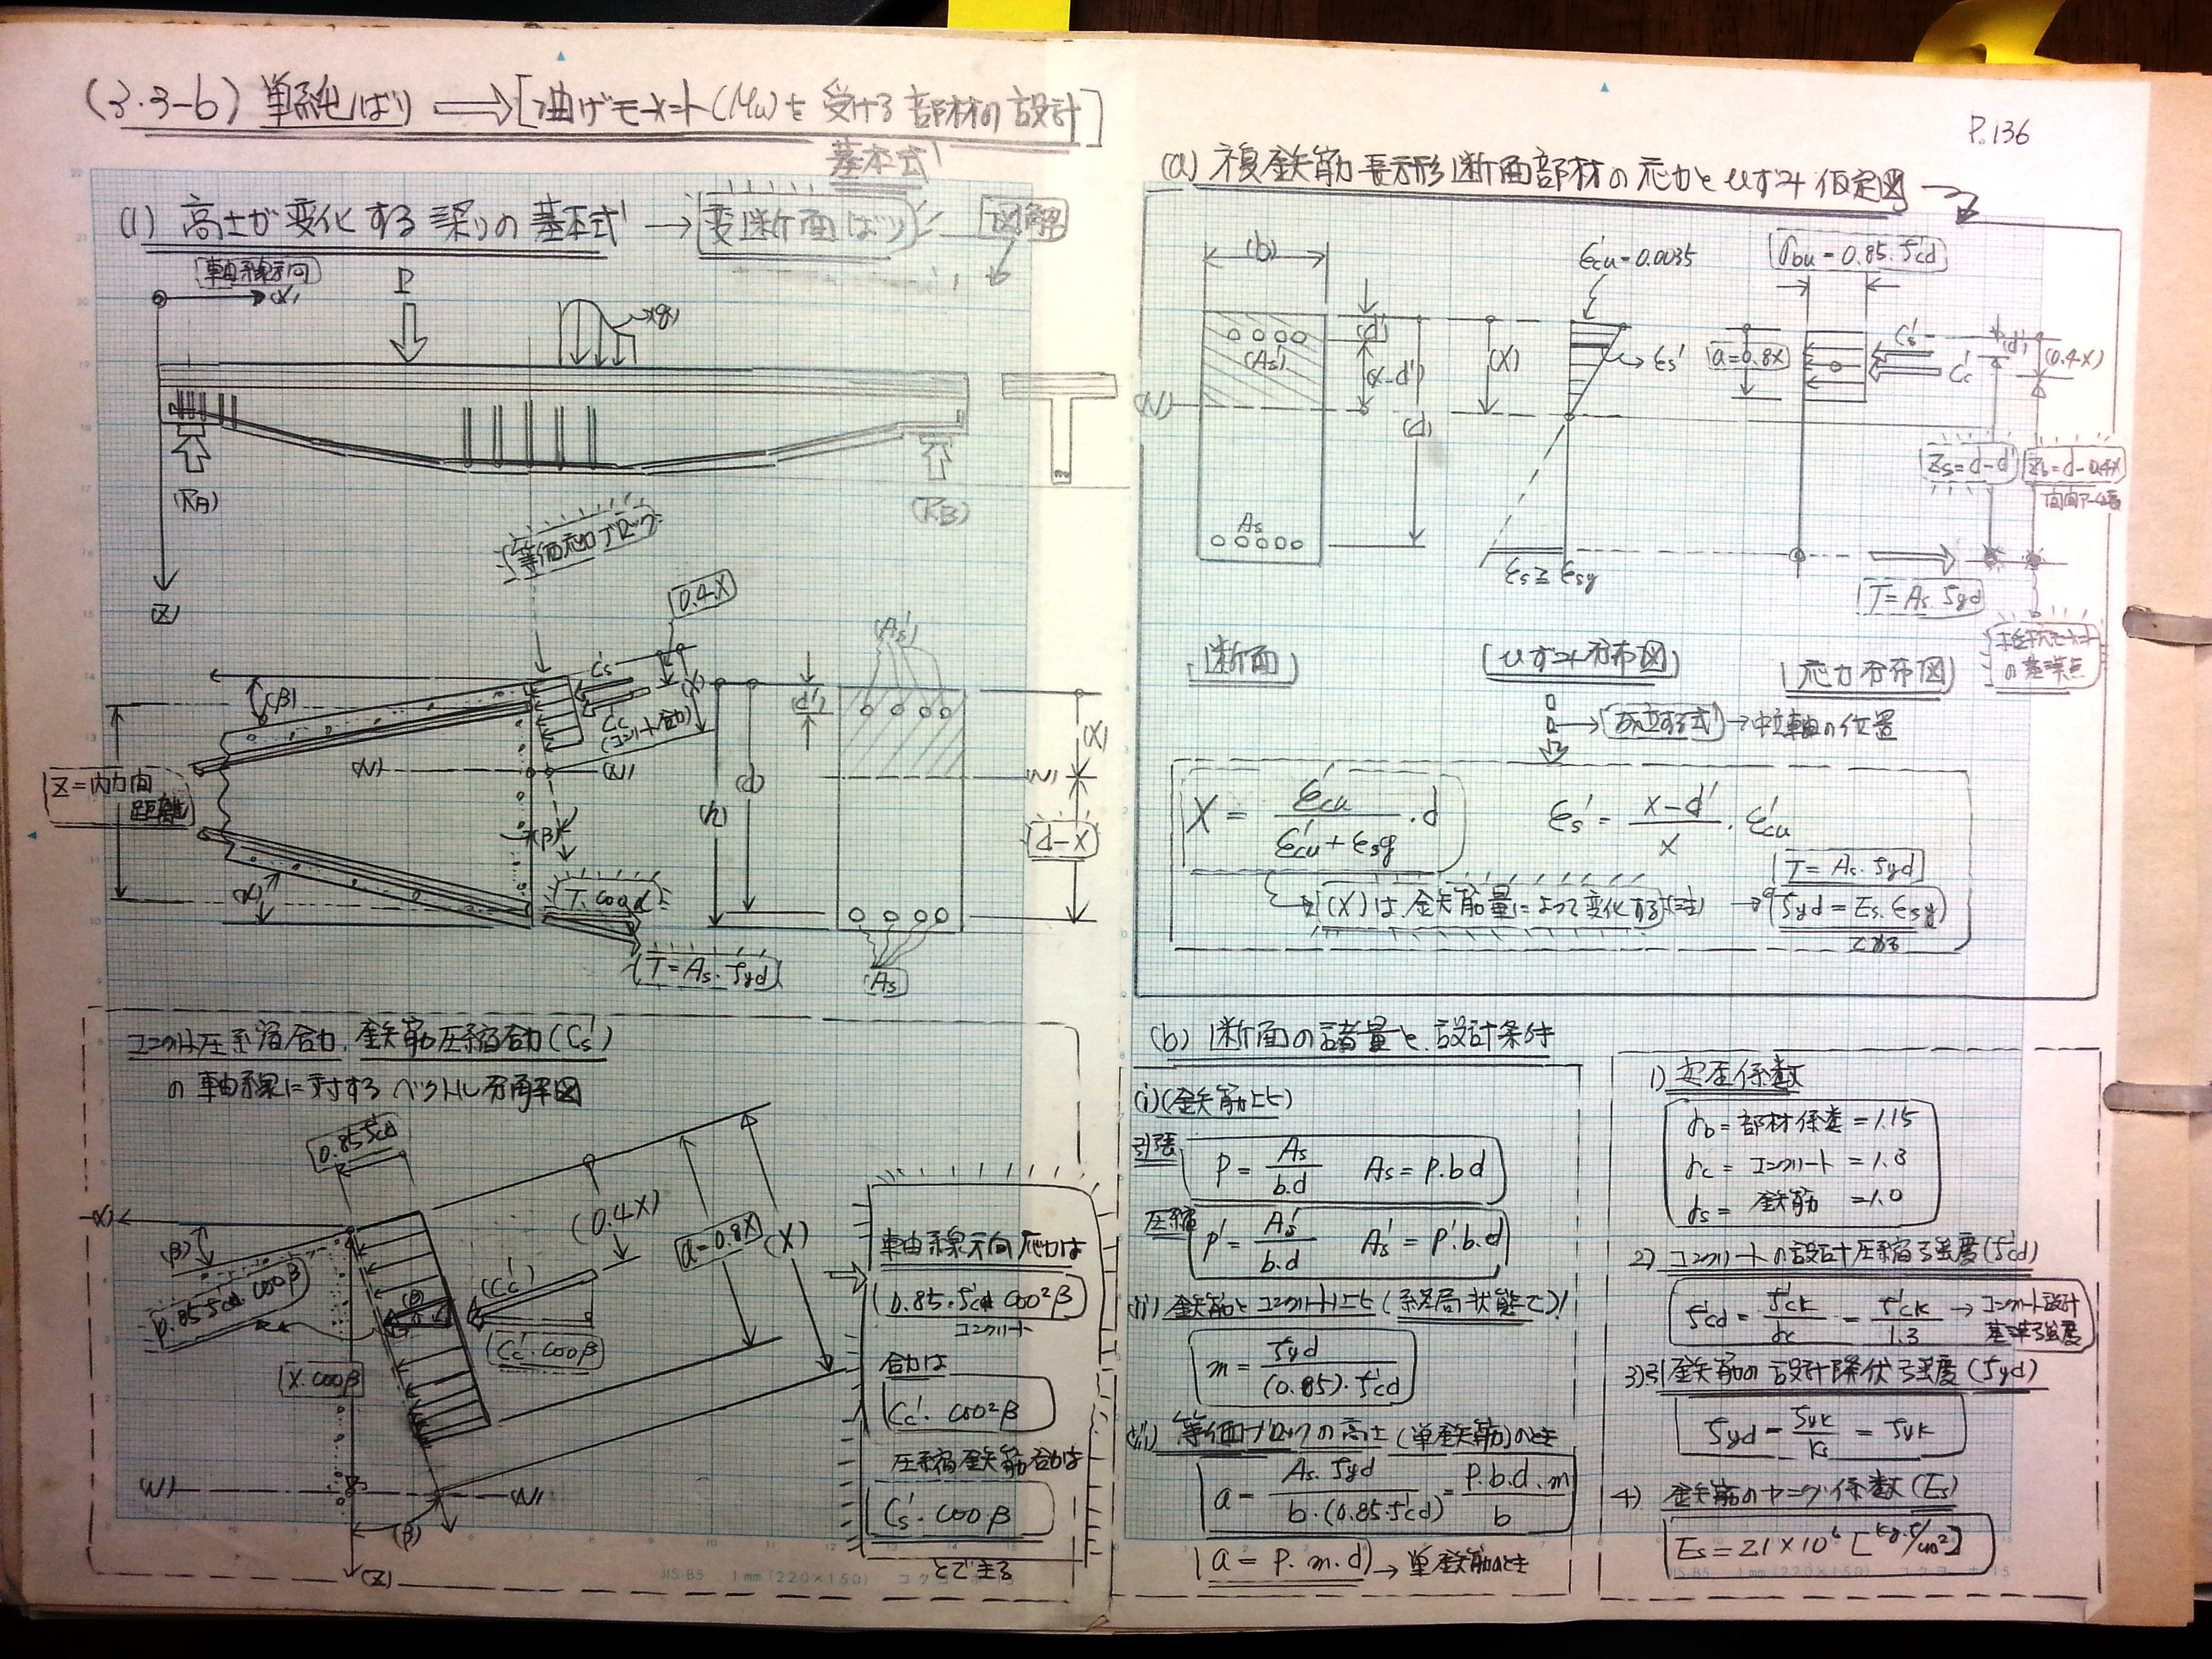 (3.3-b) 単純ばり ⟹ [曲げモーメント(Mu)を受ける部材の設計]
基本式
(1) 高さが変化する梁りの基本式 → 変断面ばり
図解
軸線方向
(x)
P
(q)
(RA)
(RB)
(Z)
等価応力ブロック
0.4X
(As')
(β)
Cs'
(X)
d'
Cc'
(コンクリート合力)
(N)
(N)
(N)
(X)
Z=内力間
距離
(h)
(d)
(β)
d-X
(α)
T.cosα
T=As.fyd
(As)
コンクリート圧縮合力,鉄筋圧縮合力(Cs')
の軸線に対するベクトル分解図
0.85f'cd
(X)
(β)
0.85f'cd cosβ
(0.4X)
a=0.8X
(X)
(Cc')
(β)
Cc'.cosβ
X.cosβ
(N)
(N)
(β)
(Z)
軸線方向応力は
0.85.f'cd cos²β
コンクリート
合力は
Cc'.cos²β
圧縮鉄筋合力は
Cs'.cosβ
とできる
JIS-B5 1mm (220×150) コクヨ
P.136
(a) 複鉄筋長方形断面部材の応力とひずみ仮定図
(b)
ε'cu=0.0035
σbu=0.85.f'cd
(d')
(As')
(x-d')
(X)
(d)
εs'
a=0.8X
Cs'
Cc'
(d')
(0.4X)
(N)
Zs=d-d'
Zb=d-0.4X
As
εs≧εsy
T=As.fyd
抵抗モーメント
の基準点
断面
ひずみ分布図
応力分布図
成立する式 → 中立軸の位置
X = ε'cu / (ε'cu+εsy) .d
εs' = (x-d')/x . ε'cu
T=As.fyd
(X)は鉄筋量によって変化する
fyd=Es.εsy
(b) 断面の諸量と設計条件
(i)(鉄筋比)
引張
P = As/b.d As=P.b.d
圧縮
P' = As'/b.d As'=P'.b.d
(ii) 鉄筋とコンクリート比(終局状態で)
m = fyd/(0.85).f'cd
(iii) 等価ブロックの高さ(単鉄筋)のとき
a = As.fyd/b.(0.85.f'cd) = P.b.d.m/b
a = P.m.d → 単鉄筋のとき
1) 安全係数
γb=部材係数=1.15
γc= コンクリート =1.3
γs= 鉄筋 =1.0
2) コンクリートの設計圧縮強度(f'cd)
f'cd = f'ck/γc = f'ck/1.3 → コンクリート設計
基準強度
3) 鉄筋の設計降伏強度(fyd)
fyd = fyk/γs = fyk
4) 鉄筋のヤング係数(Es)
Es=2.1×10⁶ [kg.f/cm²]